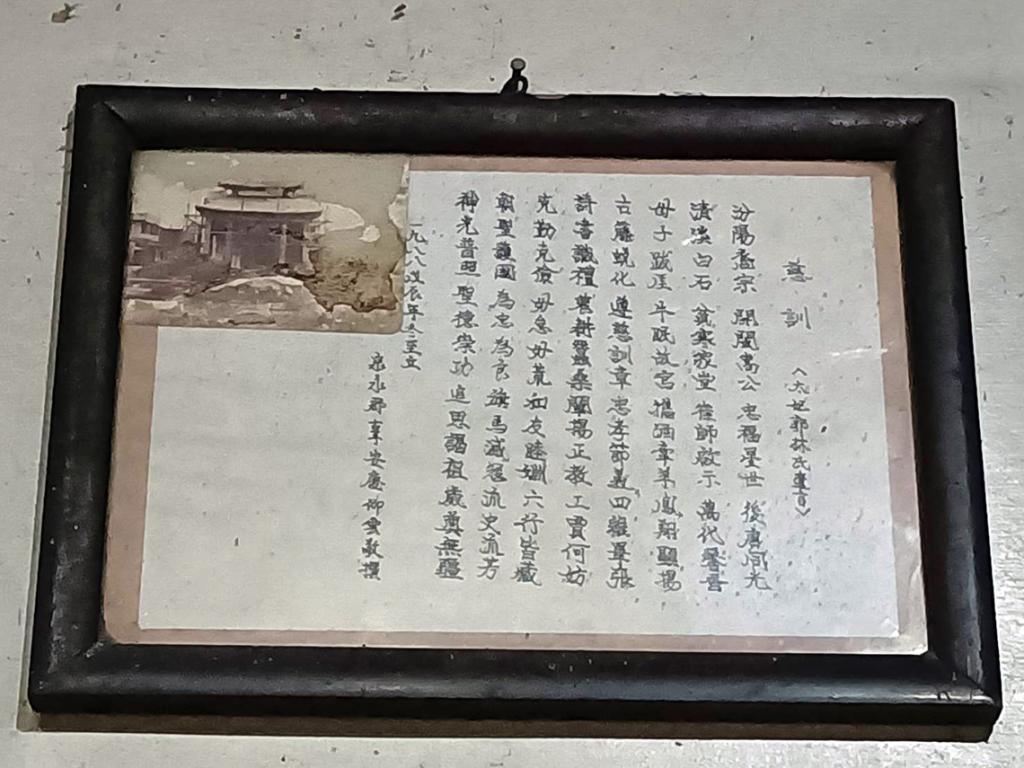 慈訓
〈太妣郭林氏遺言〉
汾陽裔宗 開閩嵩公 忠福星世 後唐同光
清溪白石 貧寒家堂 崔師啟示 萬代馨香
母子跋 年 故宮 攜酒牽羊 鳳翔顯揚
古藤蛻化 遵慈訓章 忠孝節義 四維畢張
詩書識禮 農耕蠶桑 闡揚正教 工賈何妨
克勤克儉 毋怠毋荒 和友睦婣 六行皆臧
朝聖護國 為忠為良 旗馬滅寇 流史流芳
神光普照 聖德崇功 追思謁祖 歲奠無疆
一九八八戊辰年冬至立
泉永郡辜安應柳雲敬撰